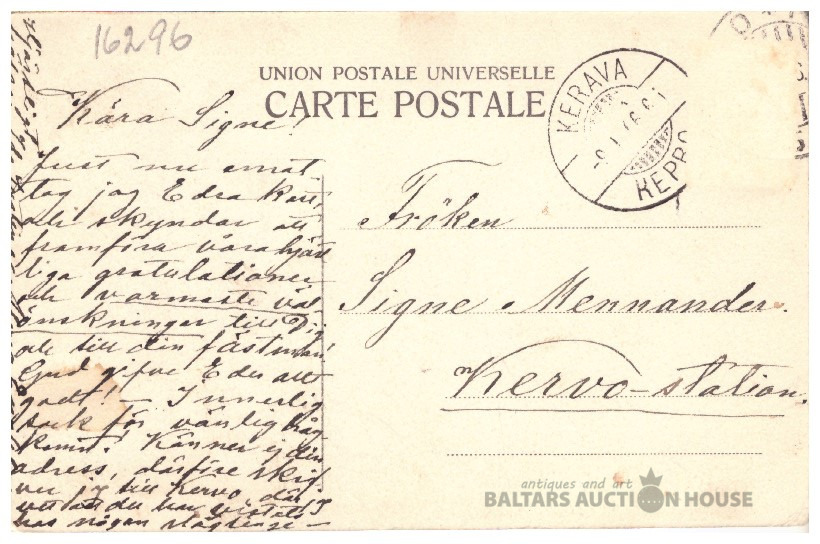 16296
UNION POSTALE UNIVERSELLE
CARTE POSTALE
KERAVA
KERVO
Kära Signe!
Just nu emot-
tog jag Edra kort,
och skyndar att
framföra våra hjärt
liga gratulationer
och varmaste väl
önskningar till Dig
och till din fästman!
Gud gifve Eder allt
godt! — Innerlig
tack för vänlig håg
komst! Känner ej din
adress, därföre skif
ver jag till Kervo, där jag
vet att du har
har någon
Fröken
Signe Mennander.
Kervo-station.
antiques and art
BALTARS AUCTION HOUSE